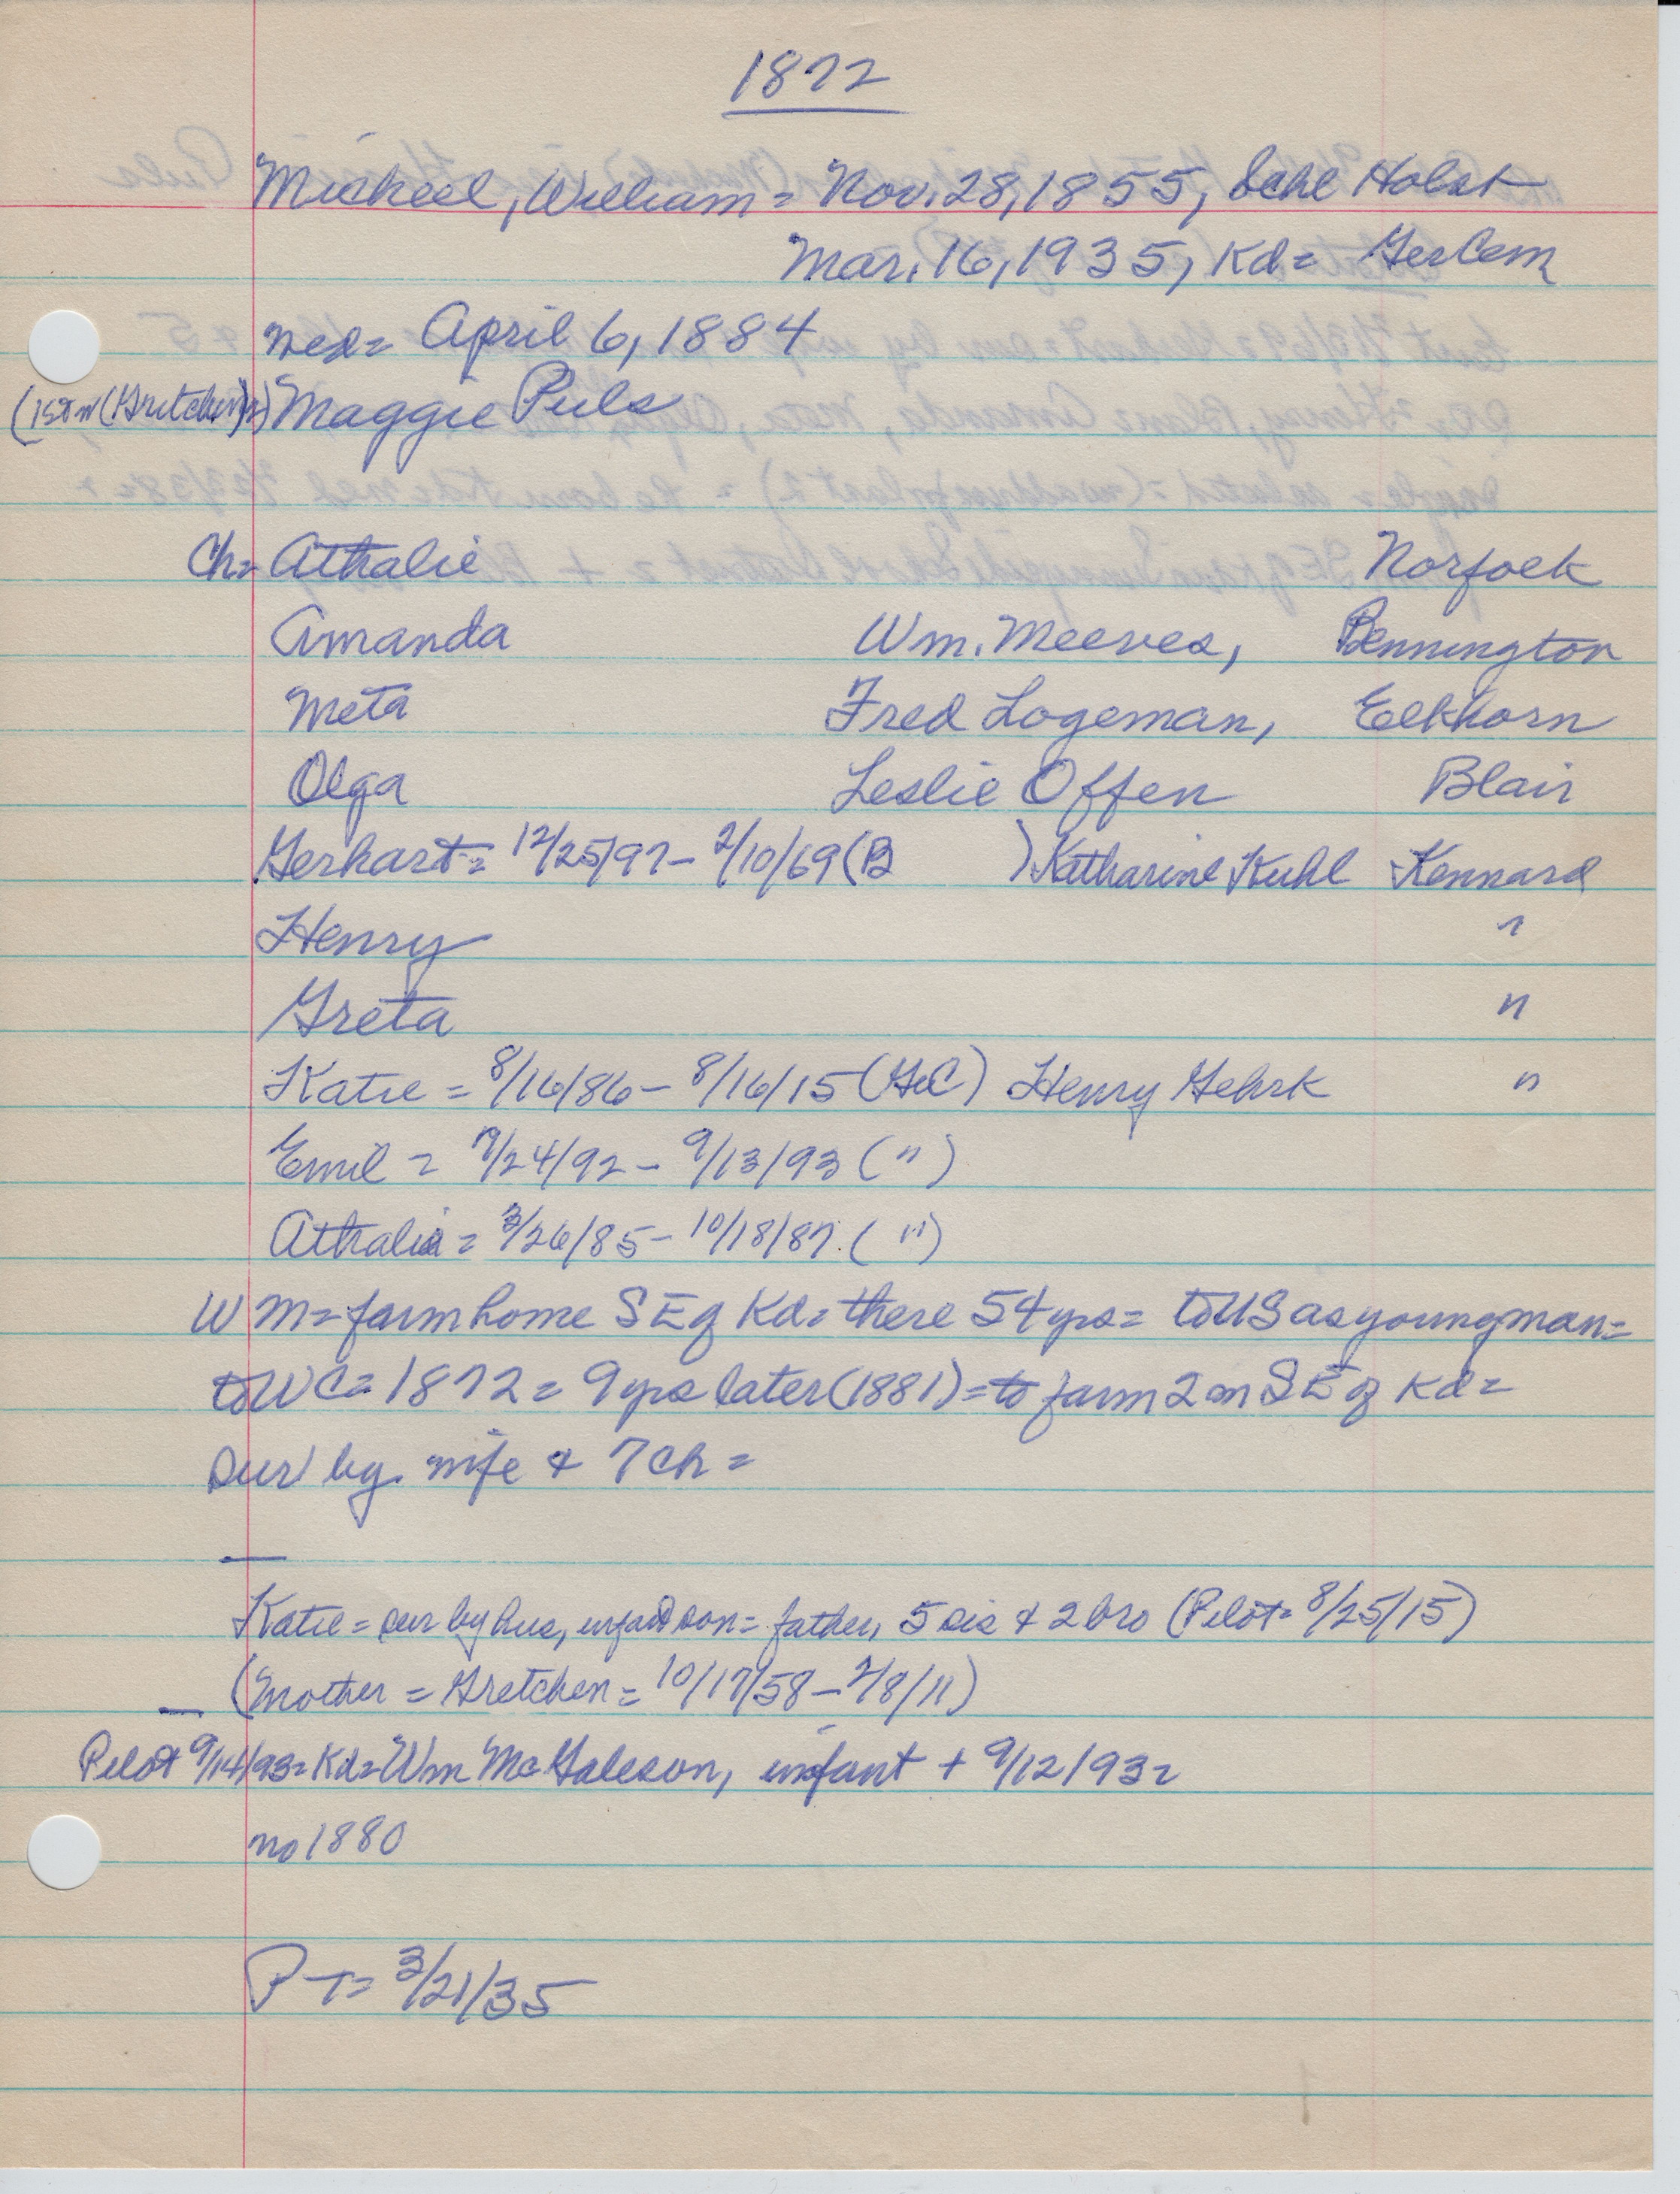 1872
Mickeel, William = Nov. 28, 1855, Schl Holst
Mar. 16, 1935, Kd = Ger Cem
med = April 6, 1884
(1st w (Gretchen)) Maggie Puls
Ch = Athalie Norfolk
Amanda Wm. Meeves, Bennington
Meta Fred Logeman, Elkhorn
Olga Leslie Offen Blair
Gerhart = 12/25/97 - 2/10/69 (B ) Katharine Kuhl Kennard
Henry "
Greta "
Katie = 8/16/86 - 8/16/15 (GC) Henry Gehrk "
Emil = 9/24/92 - 9/13/93 (")
Athalia = 3/26/85 - 10/18/87. (")
Wm = farm home SE of Kd = there 54 yrs = to US as young man =
to WC = 1872 = 9 yrs later (1881) = to farm 2 m SE of Kd =
sur by. wife & 7 ch =
Katie = sur by hus, infant son = father, 5 sis & 2 bro (Pilot = 8/25/15)
(Mother = Gretchen = 10/17/58 - 2/8/11)
Pilot 9/14/93 = Kd = Wm infant + 9/12/93 =
no 1880
PT = 3/21/35